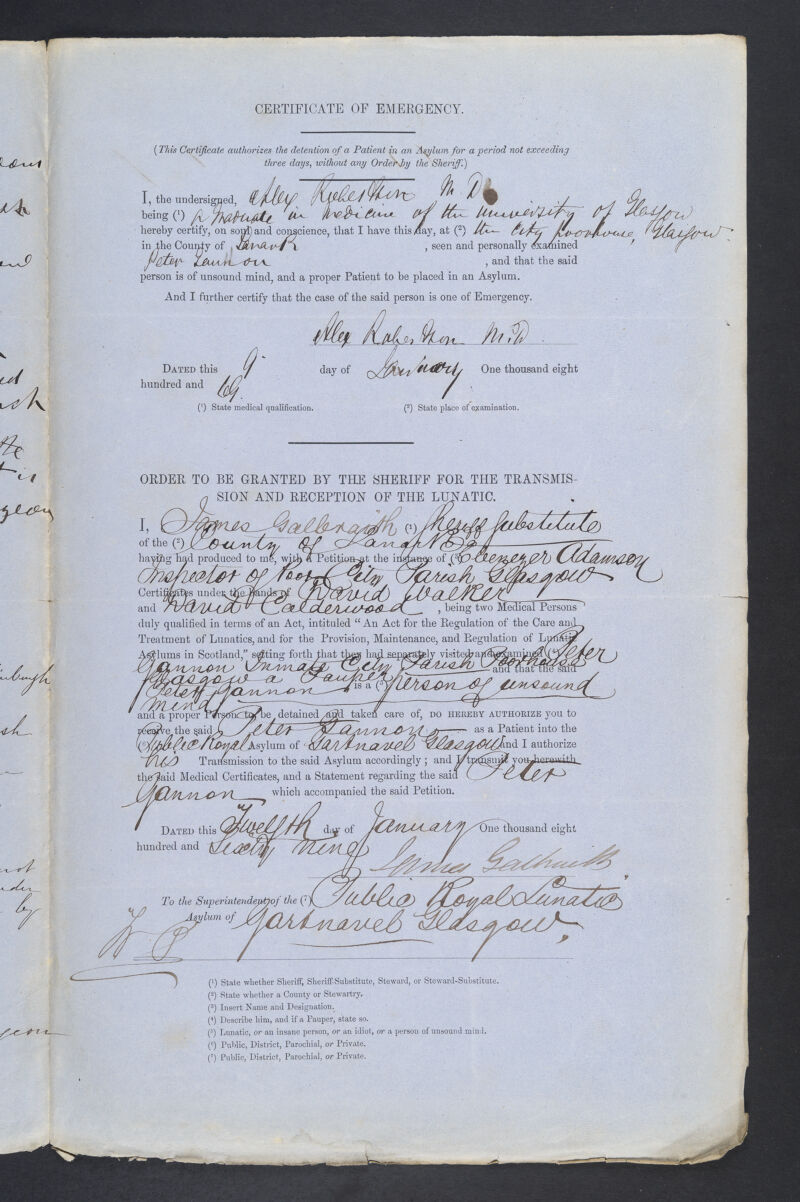 CERTIFICATE OF EMERGENCY.
(This Certificate authorizes the detention of a Patient in an Asylum for a period not exceeding
three days, without any Order by the Sheriff.)
I, the undersigned, Alex Robertson M D
being (¹) a Graduate in Medicine of the University of Glasgow
hereby certify, on soul and conscience, that I have this day, at (²) the City Poorhouse, Glasgow
in the County of Lanark , seen and personally examined
Peter Gannon , and that the said
person is of unsound mind, and a proper Patient to be placed in an Asylum.
And I further certify that the case of the said person is one of Emergency.
Alex Robertson M.D.
DATED this 9 day of January One thousand eight
hundred and 69
(¹) State medical qualification. (²) State place of examination.
ORDER TO BE GRANTED BY THE SHERIFF FOR THE TRANSMIS-
SION AND RECEPTION OF THE LUNATIC.
I, James Galbraith (¹) Sheriff Substitute
of the (²) County of Lanark
having had produced to me, with a Petition at the instance of (³) Ebenezer Adamson
Inspector of Poor City Parish Glasgow
Certificates under the hands of David Walker
and David Calderwood , being two Medical Persons
duly qualified in terms of an Act, intituled "An Act for the Regulation of the Care and
Treatment of Lunatics, and for the Provision, Maintenance, and Regulation of Lunatic
Asylums in Scotland," setting forth that they had separately visited and examined (⁴) Peter
Gannon Inmate City Parish Poorhouse
Glasgow a Pauper and that the said
Peter Gannon is a (⁵) person of unsound
mind
and a proper Person to be detained and taken care of, DO HEREBY AUTHORIZE you to
receive the said Peter Gannon as a Patient into the
Public Royal Asylum of Gartnavel Glasgow and I authorize
his Transmission to the said Asylum accordingly; and I transmit you herewith
the said Medical Certificates, and a Statement regarding the said Peter
Gannon which accompanied the said Petition.
DATED this Twelfth day of January One thousand eight
hundred and Sixty nine
James Galbraith
To the Superintendent of the (⁷) Public Royal Lunatic
Asylum of Gartnavel Glasgow.
(¹) State whether Sheriff, Sheriff-Substitute, Steward, or Steward-Substitute.
(²) State whether a County or Stewartry.
(³) Insert Name and Designation.
(⁴) Describe him, and if a Pauper, state so.
(⁵) Lunatic, or an insane person, or an idiot, or a person of unsound mind.
(⁶) Public, District, Parochial, or Private.
(⁷) Public, District, Parochial, or Private.